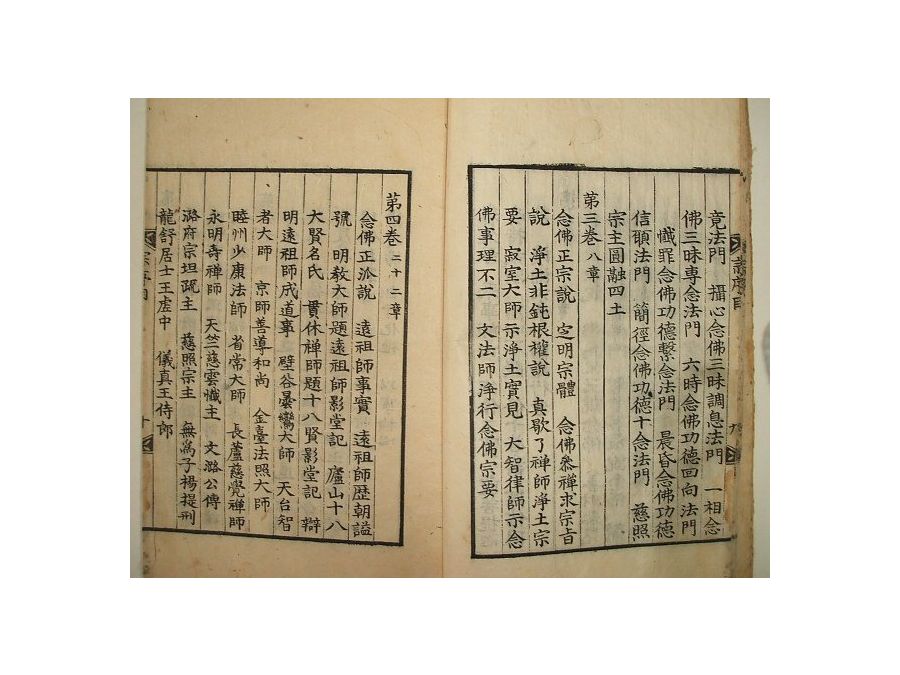 竟法門　攝心念佛三昧調息法門　一相念
佛三昧專念法門　六時念佛功德回向法門
懺罪念佛功德繫念法門　晨昏念佛功德
信願法門　簡徑念佛功德十念法門　慈照
宗主圓融四土
第三卷八章
念佛正宗說　定明宗體　念佛叅禪求宗旨
說　淨土非鈍根權說　真歇了禪師淨土宗
要　寂室大師示淨土實見　大智律師示念
佛事理不二　文法師淨行念佛宗要
第四卷二十二章
念佛正派說　遠祖師事實　遠祖師歷朝謚
號　明教大師題遠祖師影堂記　廬山十八
大賢名氏　貫休禪師題十八賢影堂記　辯
明遠祖師成道事　壁谷曇鸞大師　天台智
者大師　京師善導和尚　金臺法照大師
睦州少康法師　省常大師　長蘆慈覺禪師
永明壽禪師　天竺慈雲懺主　文潞公傳
潞府宗坦疏主　慈照宗主　無為子楊提刑
龍舒居士王虛中　儀真王侍郎